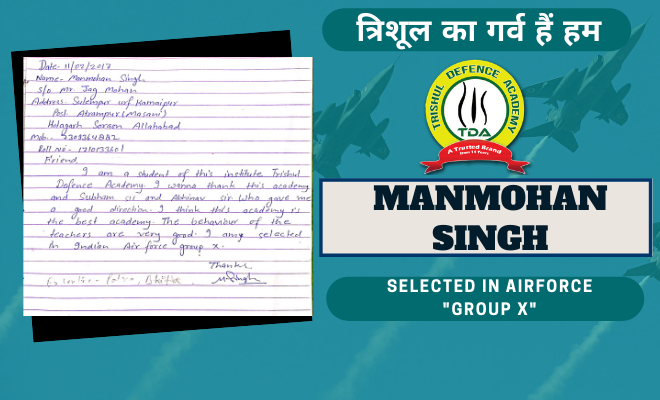 Date- 11/07/2017
Name- Manmohan Singh
S/o Mr Jag Mohan
Address- Sulempur urf Kamaipur
Post Atrampur (Masani)
Holagarh Soraon Allahabad
Mob.
Roll No-
Friend
I am a student of this institute Trishul
Defence Academy. I wanna thank this academy
and Subham sir and Abhinav sir who gave me
a good direction. I think this academy is
the best academy. The behaviour of the
teachers are very good. I am selected
in Indian Air force group X.
Thanks
MSingh
त्रिशूल का गर्व हैं हम
TRISHUL DEFENCE ACADEMY
TDA
A Trusted Brand
MANMOHAN
SINGH
SELECTED IN AIRFORCE
"GROUP X"